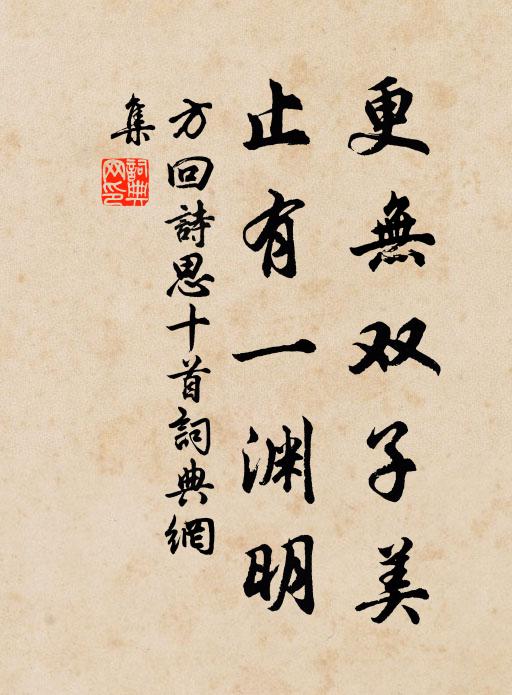 更無双子美
止有一渊明
方回詩思十首詞典網
集
詞典网印